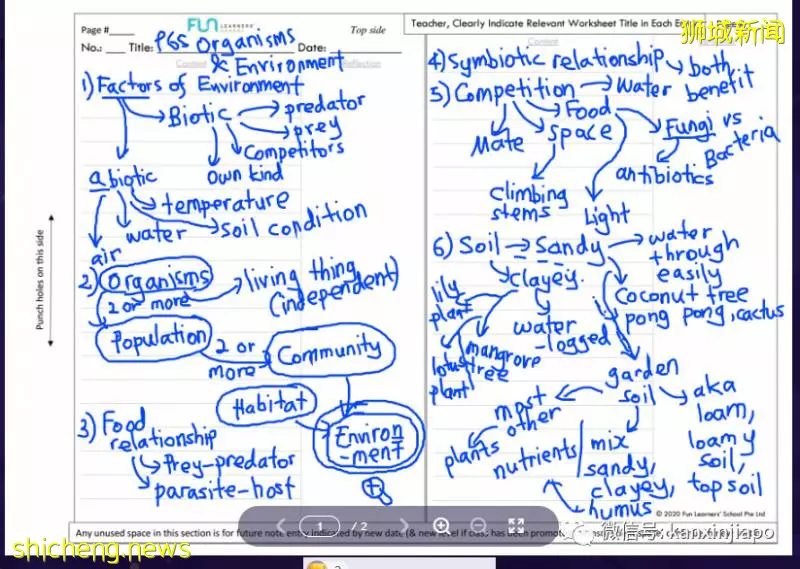 Page #
FUN LEARNERS'
SCHOOL
Top side
No.: Title: PGS Organisms
& Environment
Date:
Content
Reflection
1) Factors of Environment
Biotic
predator
prey
Competitors
own kind
abiotic
temperature
soil condition
water
air
2) Organisms
living thing
(independent)
2 or more
Population
2 or
more
Community
Habitat
Environ
-ment
3) Food
relationship
Prey-predator
parasite-host
Punch holes on this side
Teacher, Clearly Indicate Relevant Worksheet Title in Each
狮城新闻
Content
4) Symbiotic relationship
both
benefit
5) Competition
Water
Food
Space
Mate
Fungi vs
Bacteria
antibiotics
climbing
stems
Light
6) Soil
Sandy
water
through
easily
clayey.
coconut tree
pong pong, cactus
lily
plant
water
-logged
mangrove
tree
lotus
plant
garden
soil
aka
loam,
loamy
soil,
top soil
most
other
plants
nutrients
mix
sandy,
clayey,
humus
© 2020 Fun Learners' School Pte Ltd
1 / 2
Any unused space in this section is for future note entry indicated by new date (& new level if class has been promo
微信号: kanxinjiapo
shicheng.news